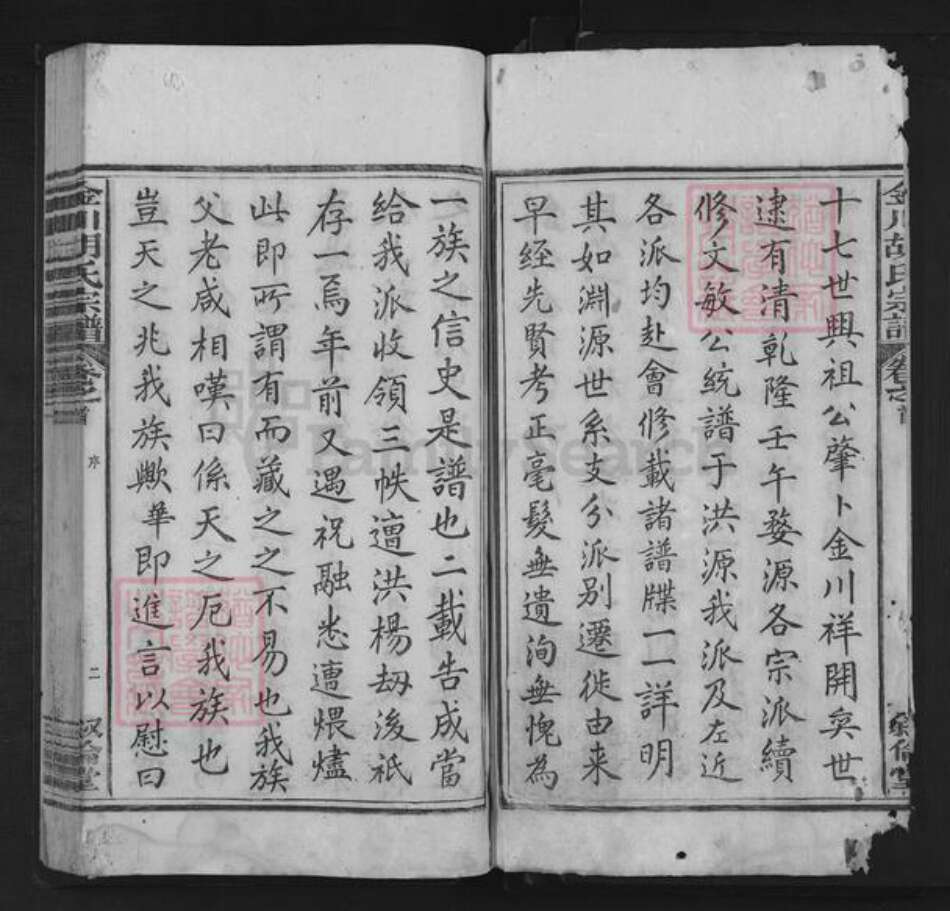 十七世興祖公肇卜金川祥開奕世
逮有清乾隆壬午婺源各宗派續
修文敏公統譜于洪源我派及左近
各派均赴會修載諸譜牒一一詳明
其如淵源世系支分派别遷徙由来
早経先賢考正毫髮無遺洵無愧為
一族之信史是譜也二載告成當
給我派收領三帙遭洪楊刼後祇
存一焉年前又遇祝融悉遭煨燼
此即所謂有而藏之之不易也我族
父老咸相嘆曰係天之厄我族也
豈天之兆我族歟華即進言以慰曰
金川胡氏宗譜
卷之首
序
二
敘倫堂